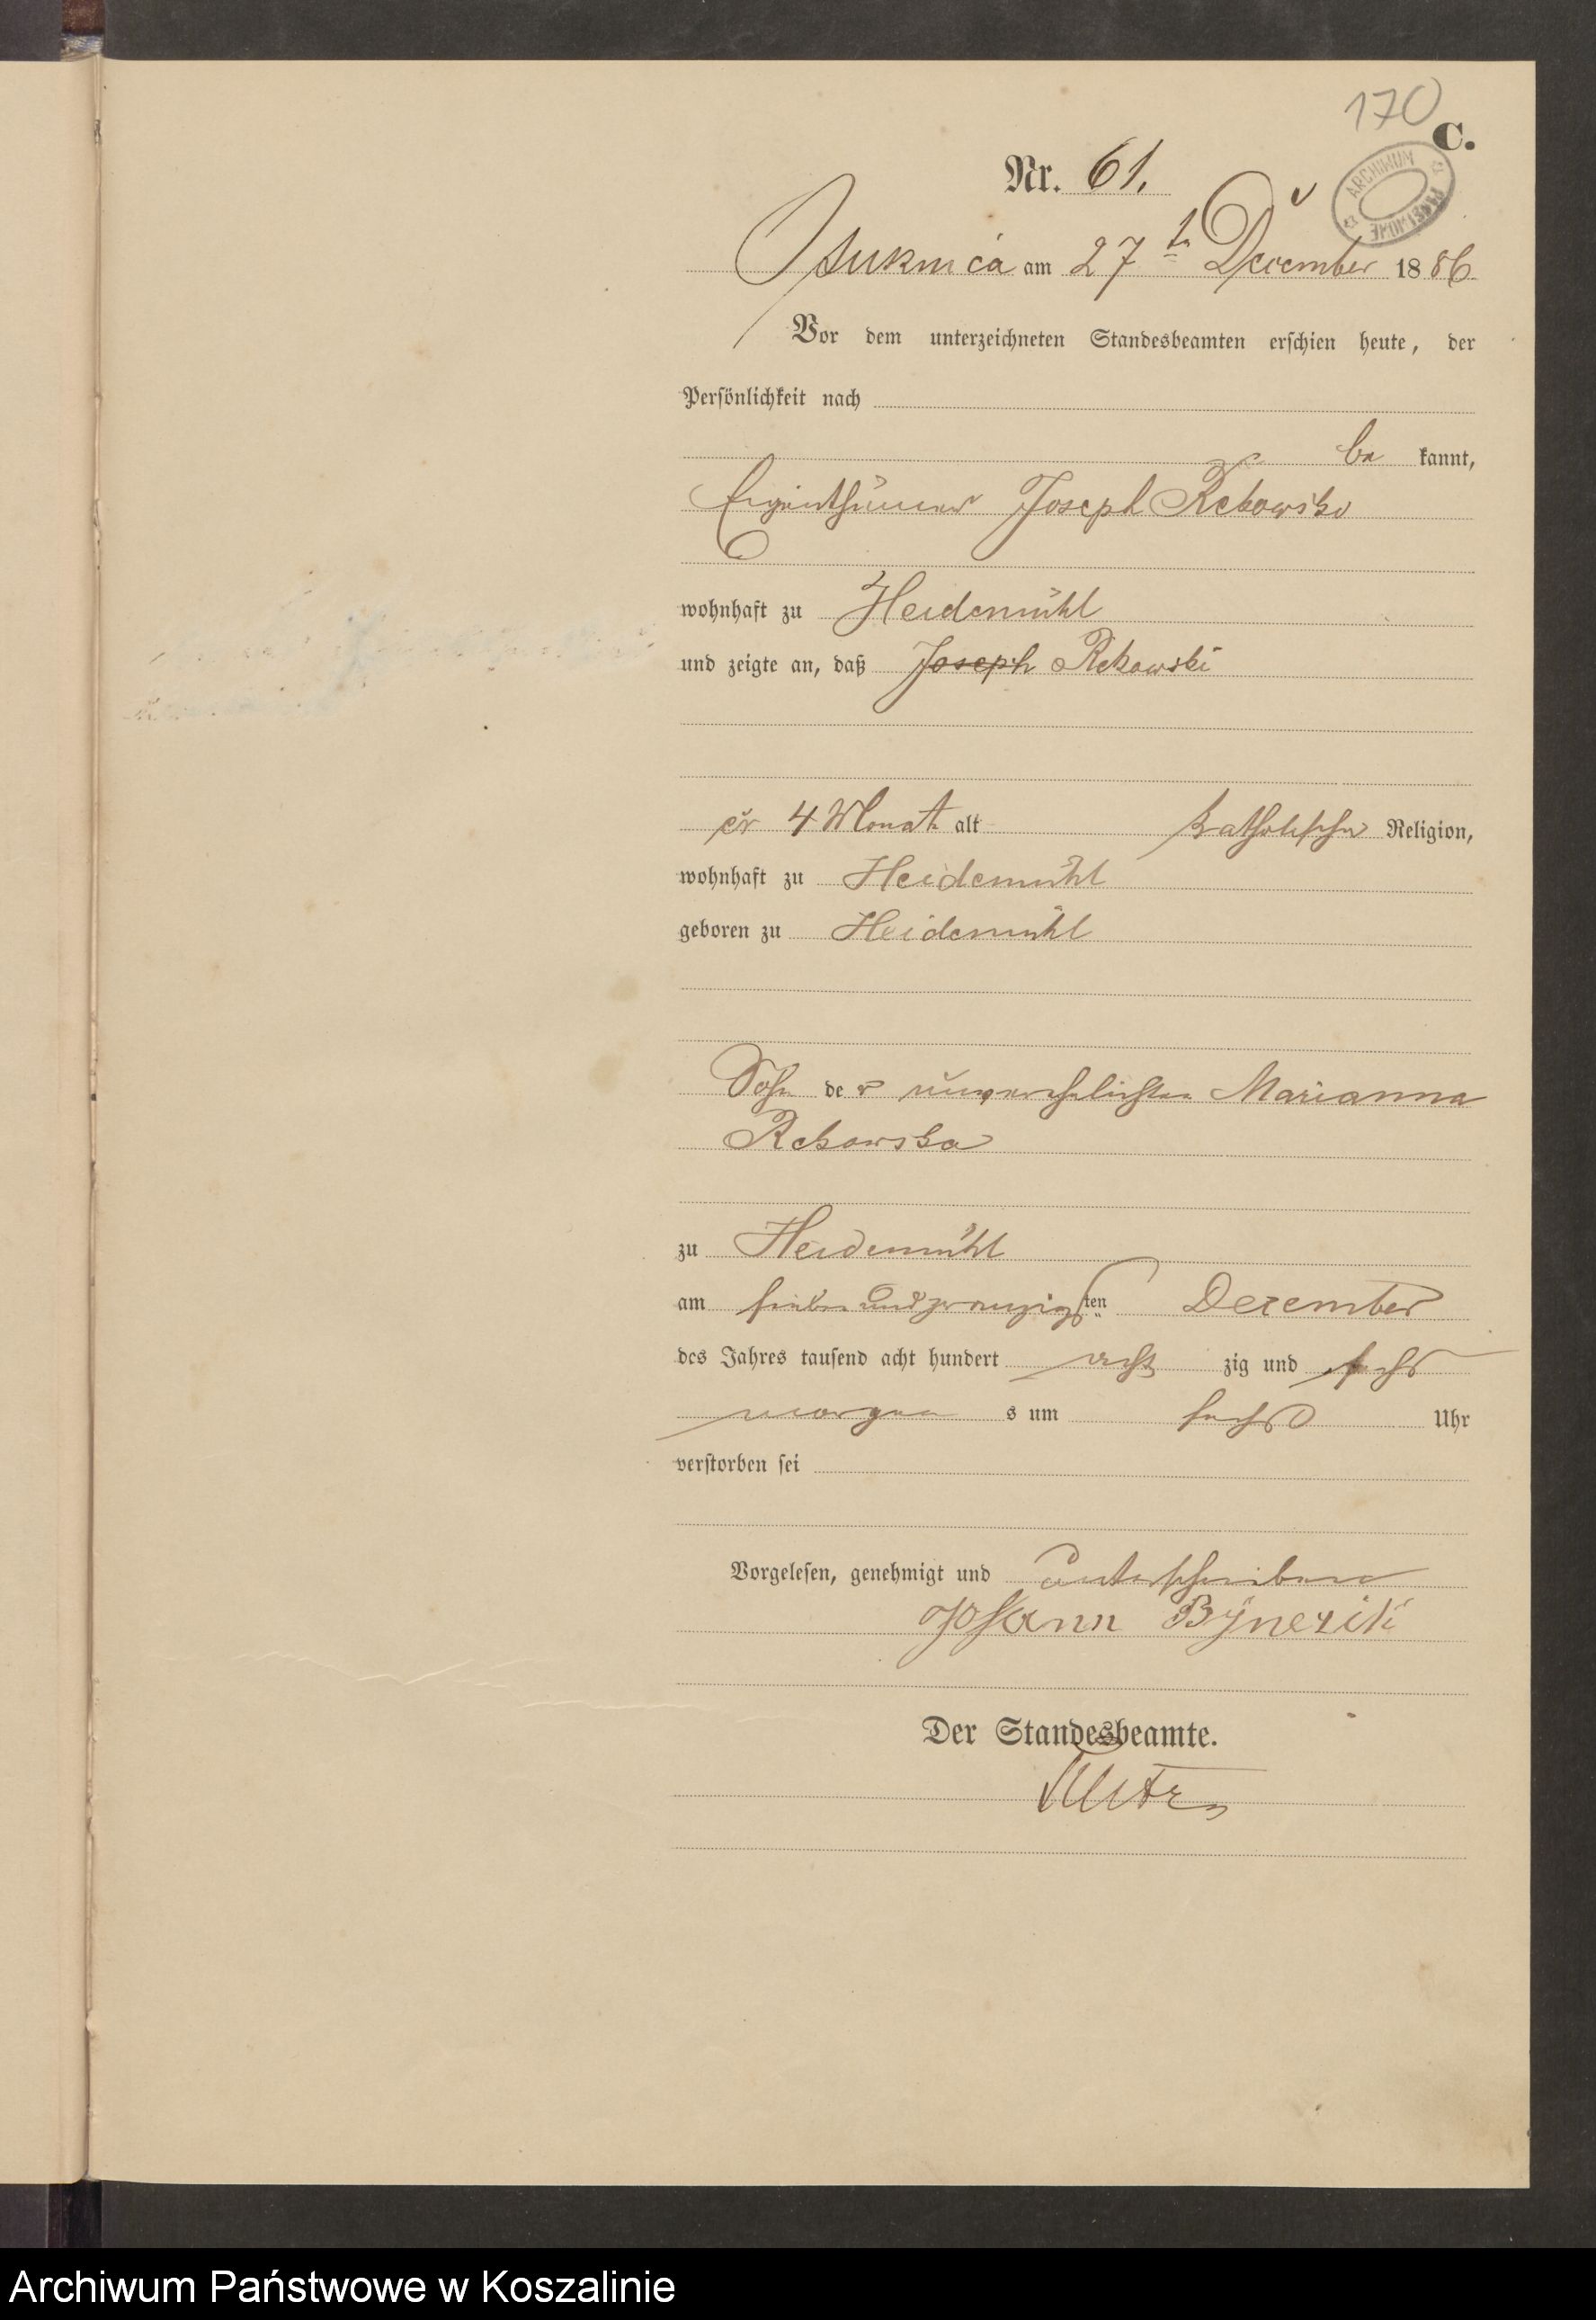 170
C.
ARCHIWUM PAŃSTWOWE
Nr. 61.
Osuknica am 27 ten December 1886
Vor dem unterzeichneten Standesbeamten erschien heute, der
Persönlichkeit nach
be kannt,
Eigenthümer Joseph Rekowski
wohnhaft zu Heidemühl
und zeigte an, daß Joseph Rekowski
cr 4 Monate alt katholischer Religion,
wohnhaft zu Heidemühl
geboren zu Heidemühl
Sohn der unverehelichten Marianna
Rekowska
zu Heidemühl
am sieben und zwanzigsten ten Dezember
des Jahres tausend acht hundert acht zig und sechs
morgen s um sechs Uhr
verstorben sei
Vorgelesen, genehmigt und unterschrieben
Johann
Der Standesbeamte.
Archiwum Państwowe w Koszalinie